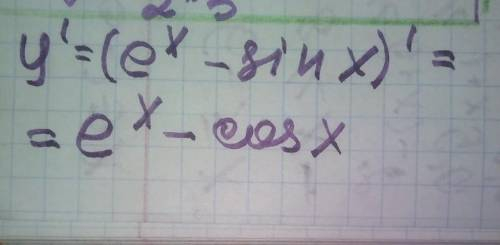 y' = (e^x - sin x)' =
= e^x - cos x